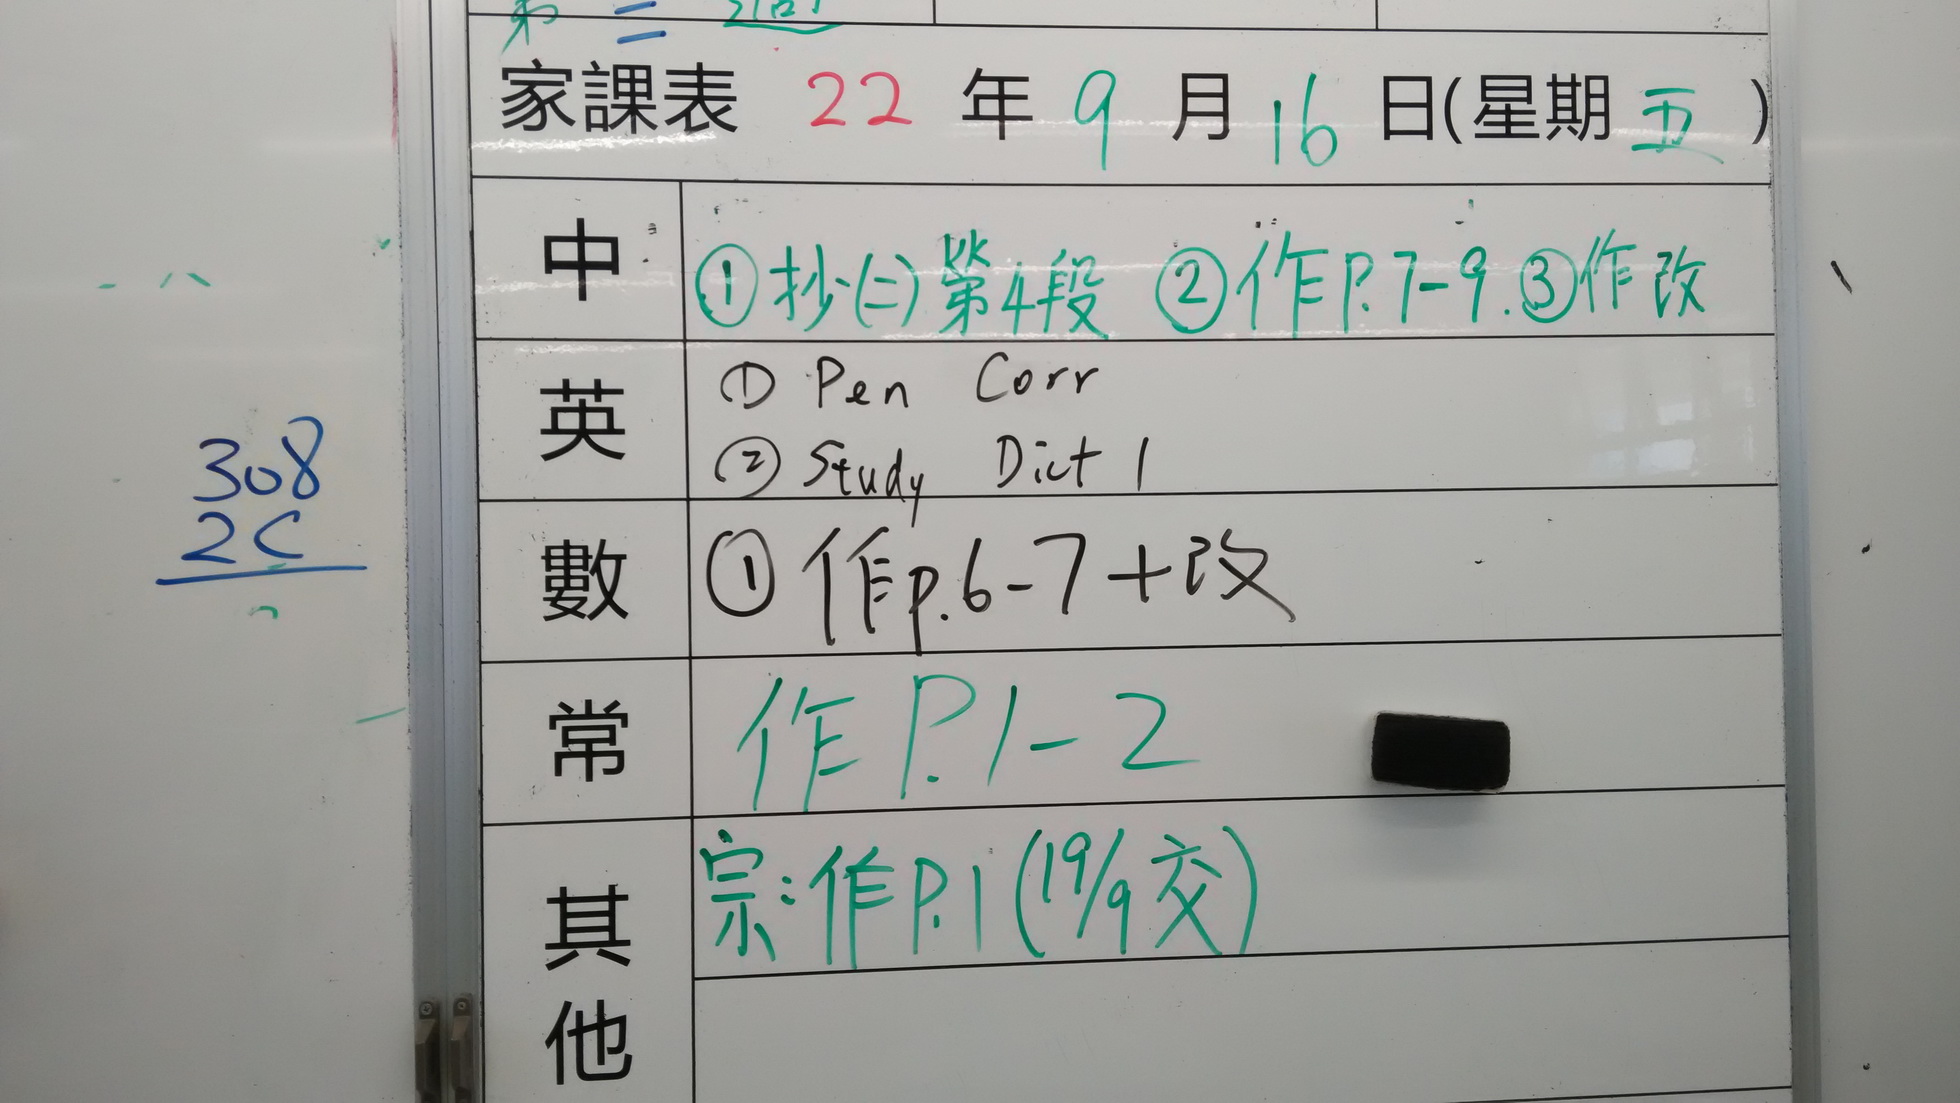 第二週
家課表 22 年 9 月 16 日(星期 五 )
中 ①抄(二)第4段 ②作P.7-9.③作改
英 ① Pen Corr
② Study Dict 1
數 ① 作p.6-7+改
常 作 P.1-2
其他 宗:作P.1(19/9交)
308
2C